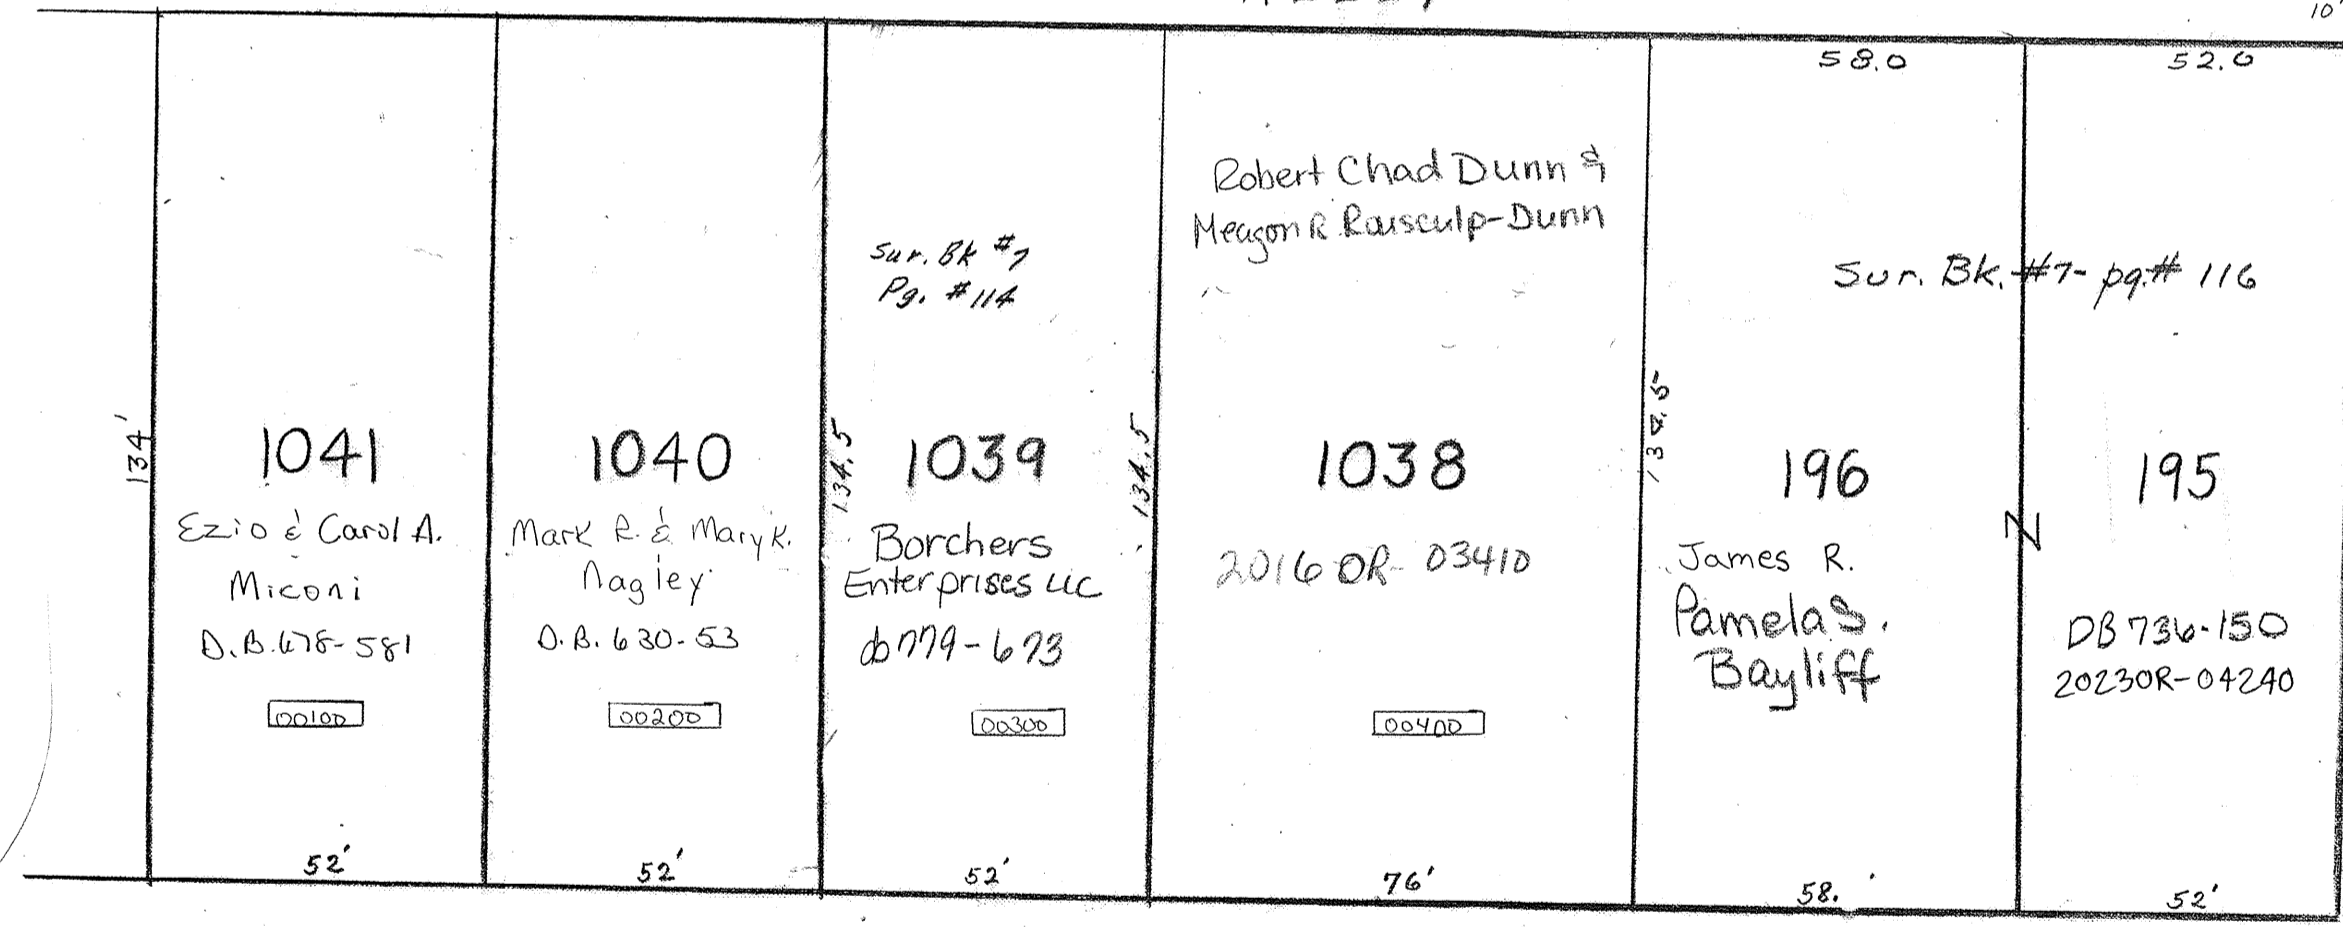 10'
134'
1041
Ezio & Carol A.
Miconi
D.B. 678-581
00100
52'
1040
Mark R. & Mary K.
Nagley
D.B. 630-53
00200
52'
134.5
Sur. Bk #7
Pg. #114
1039
Borchers
Enterprises LLC
db 779-673
00300
52'
134.5
Robert Chad Dunn &
Meagon R. Rausculp-Dunn
1038
2016 OR- 03410
00400
76'
58.0
52.0
Sur. Bk. #7- pg.# 116
196
James R.
Pamela S.
Bayliff
58.'
195
DB 736-150
2023OR-04240
52'